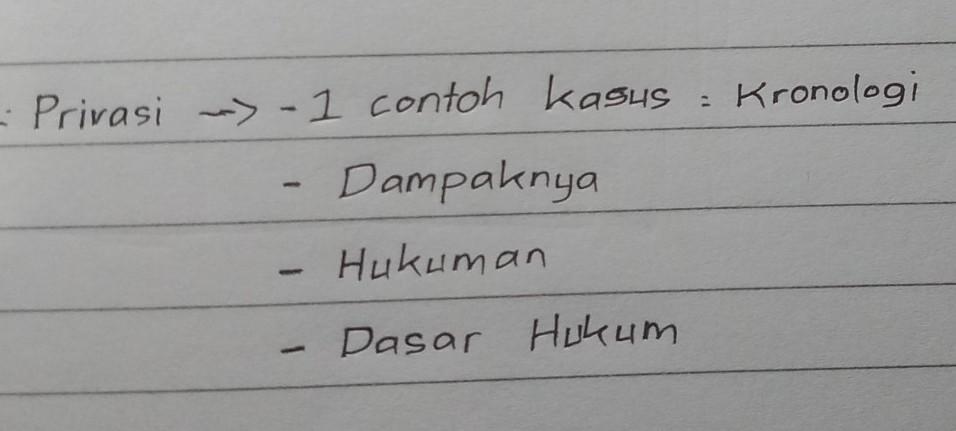 : Privasi --> - 1 contoh kasus : Kronologi
- Dampaknya
- Hukuman
- Dasar Hukum